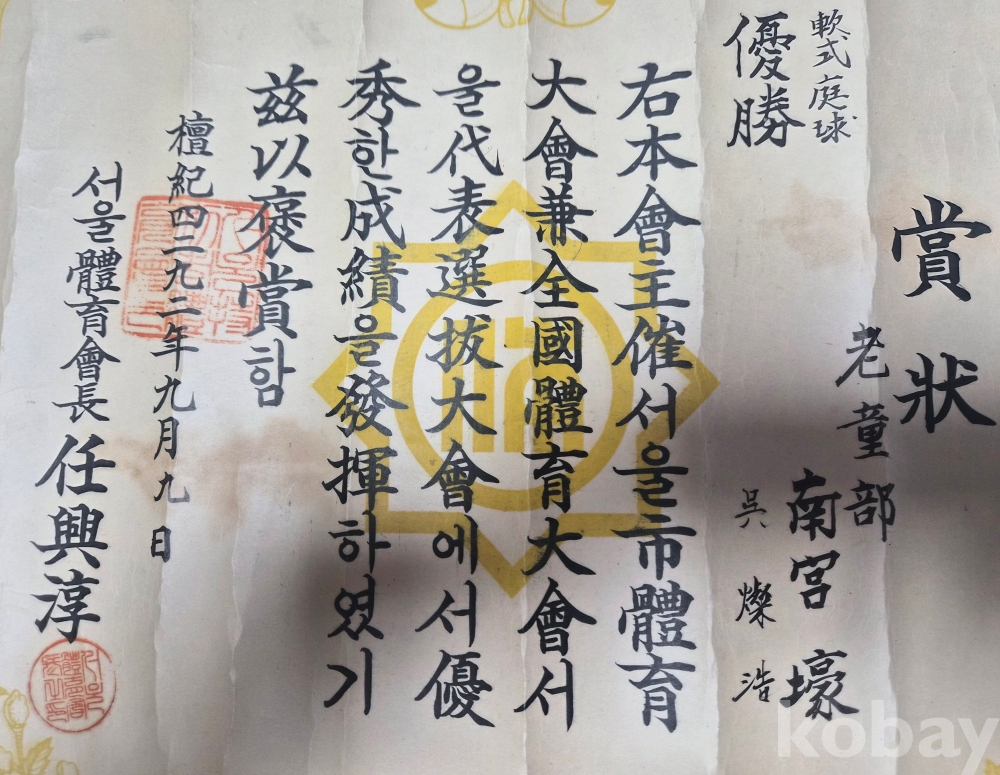 賞狀
老童部
南宮壕
吳燦浩
軟式庭球
優勝
右本會主催서울市體育
大會兼全國體育大會서
울代表選拔大會에서優
秀한成績을發揮하였기
玆以褒賞함
檀紀四二九二年九月九日
서울體育會長 任興淳
kobay